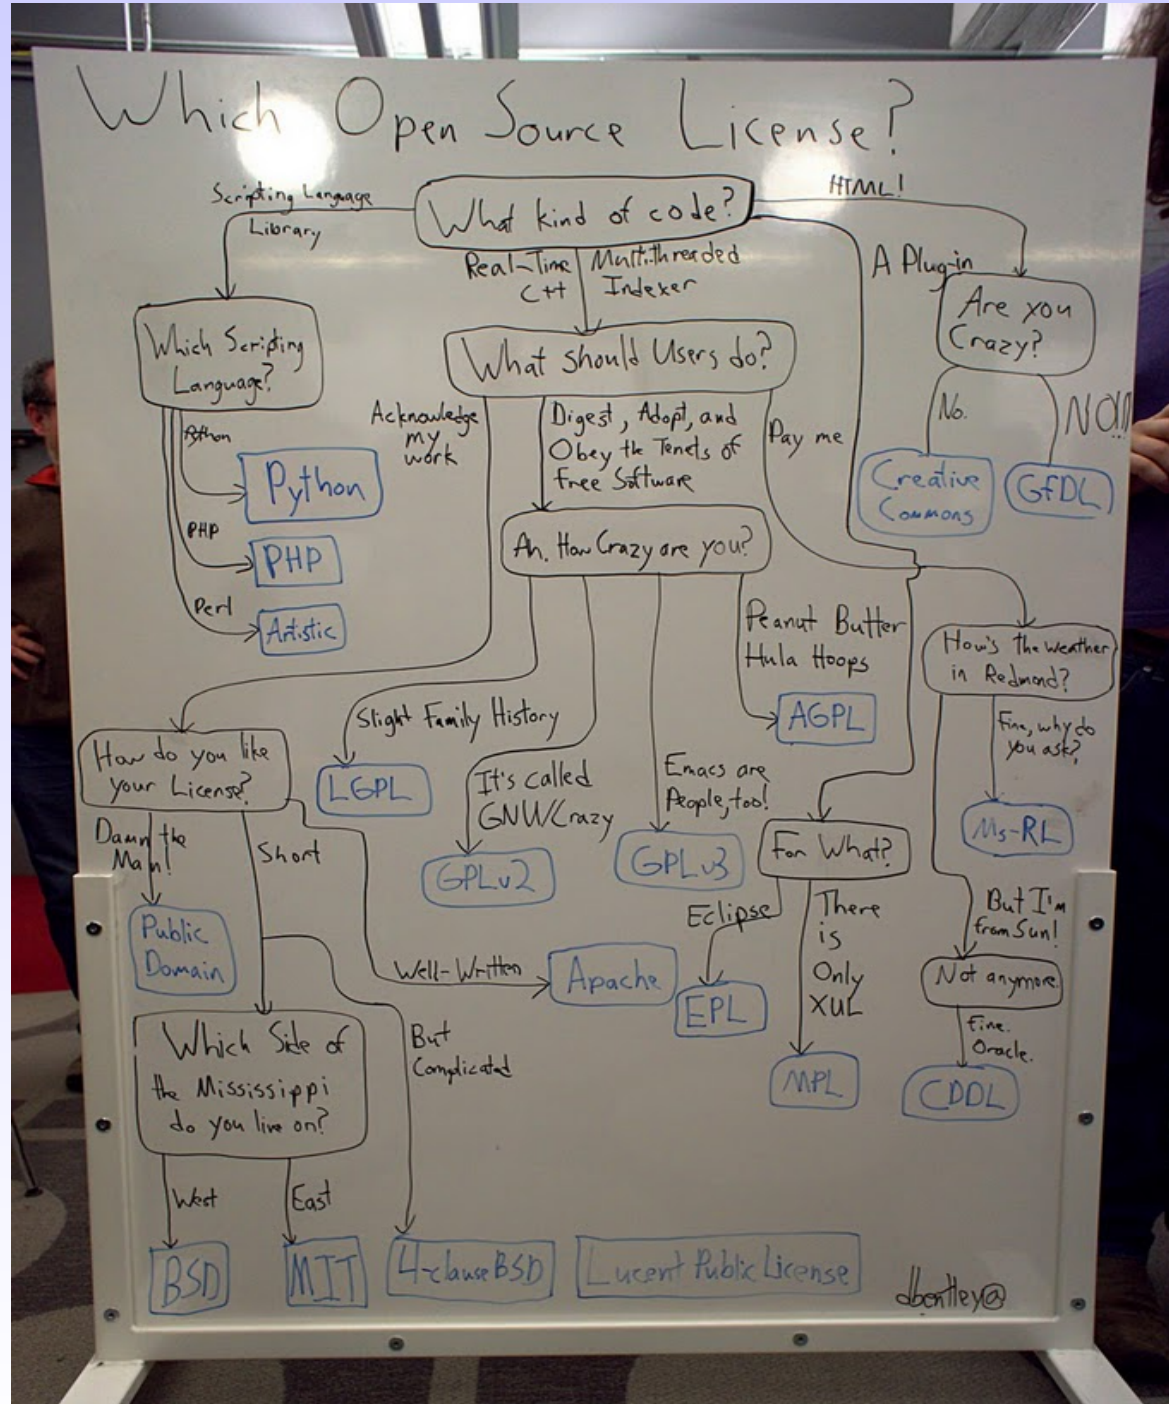 Which Open Source License?
What kind of code?
Scripting Language
Library
Real-Time
C++
Multithreaded
Indexer
HTML!
A Plug-in
Are you
Crazy?
No.
NO!!!
Creative
Commons
GFDL
Which Scripting
Language?
Python
Python
PHP
PHP
Perl
Artistic
What should Users do?
Acknowledge
my
work
Digest, Adopt, and
Obey the Tenets of
Free Software
Pay me
Ah. How Crazy are you?
Slight Family History
LGPL
It's called
GNU/Crazy
GPLv2
Emacs are
People, too!
GPLv3
Peanut Butter
Hula Hoops
AGPL
How's the weather
in Redmond?
Fine, why do
you ask?
Ms-RL
But I'm
from Sun!
Not anymore.
Fine.
Oracle.
CDDL
For What?
Eclipse
EPL
There
is
Only
XUL
MPL
How do you like
your License?
Damn the
Man!
Public
Domain
Short
Well-Written
Apache
But
Complicated
Which Side of
the Mississippi
do you live on?
West
East
BSD
MIT
4-clause BSD
Lucent Public License
dbentley@